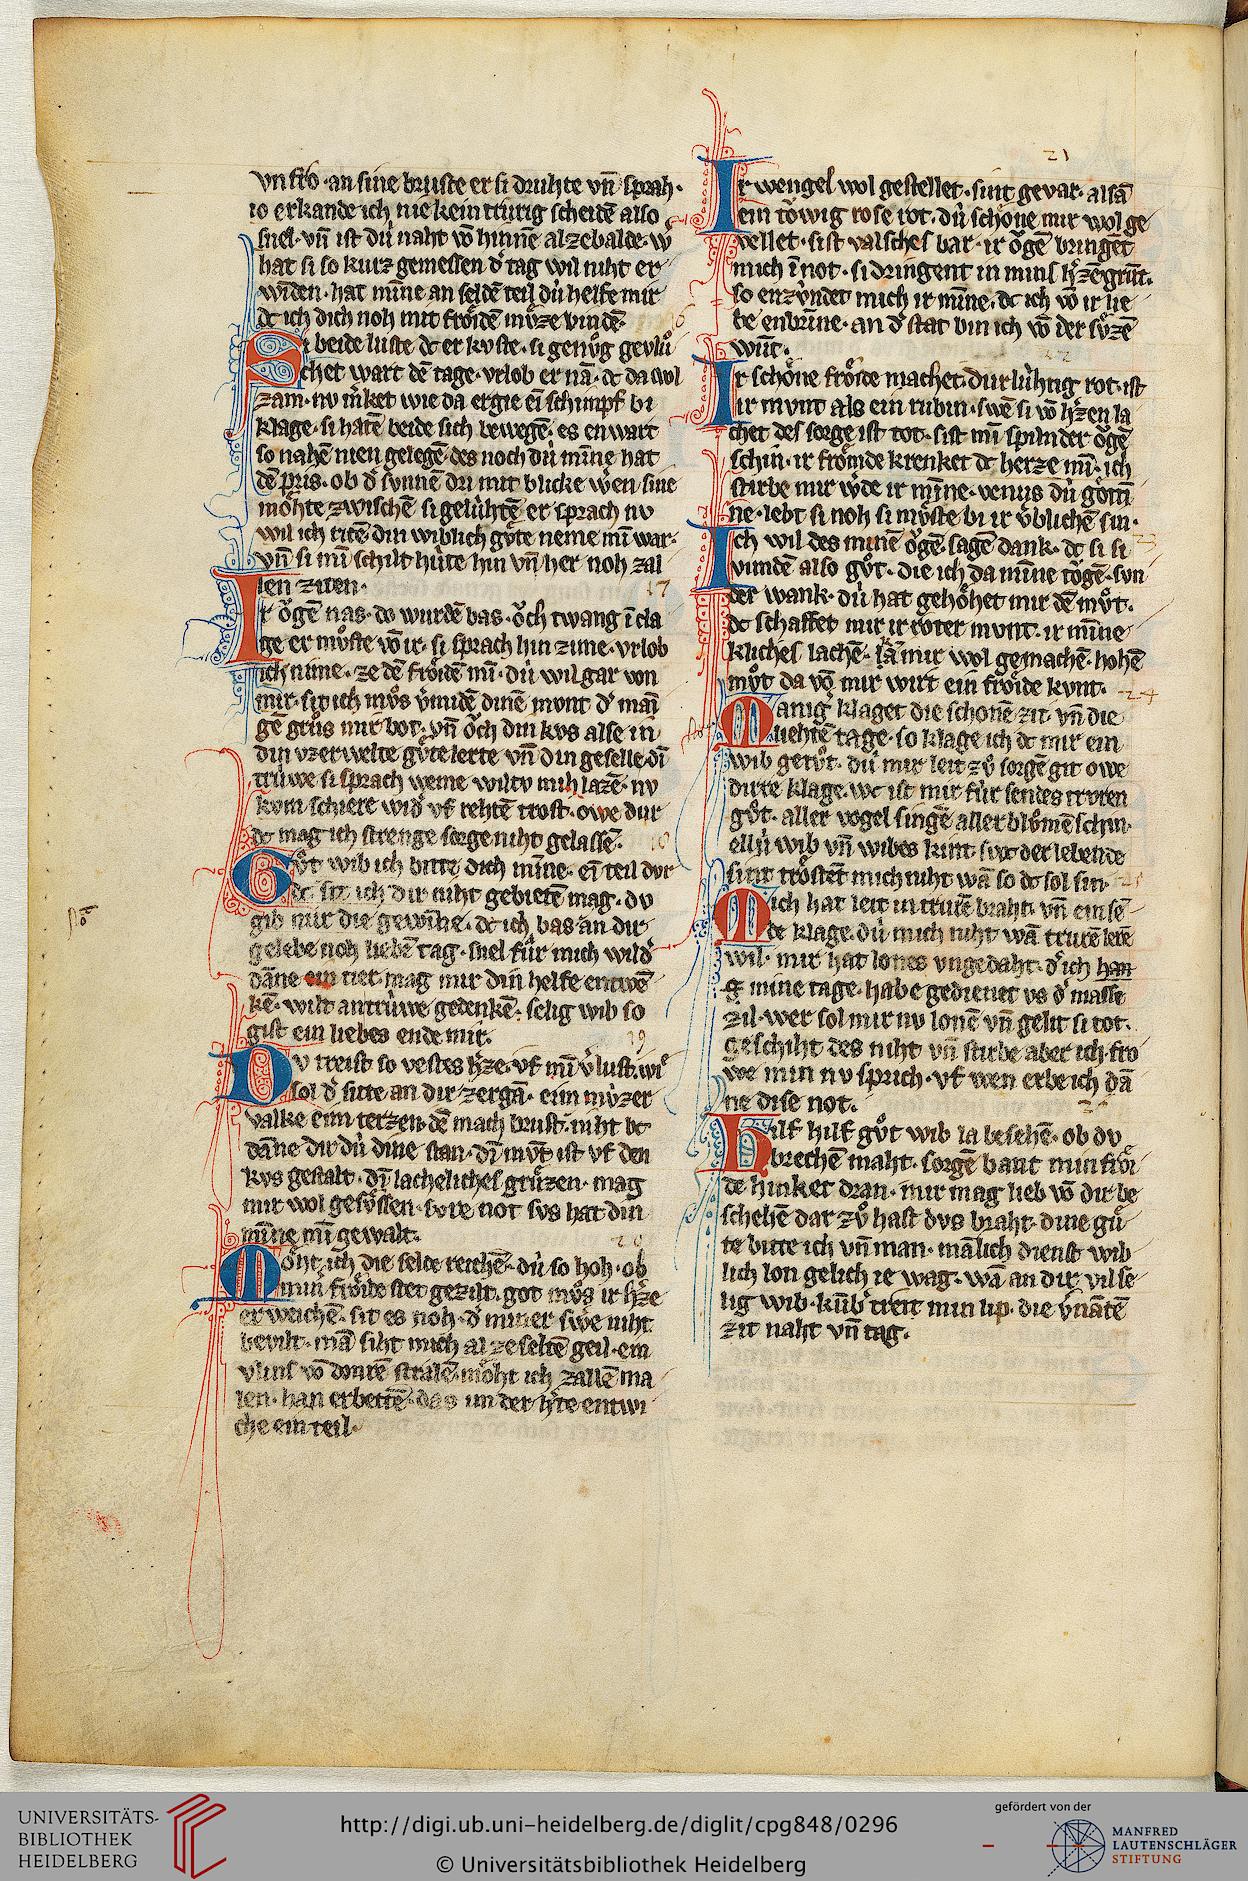 vn fro · an sine bruste er si druhte vn̄ sprah ·
io erkande ich nie kein trurig scheidē also
snel · vn̄ ist dú naht vō hinnē alzebalde · w
hat si so kurz gemessen d᾽ tag wil niht er
winden · hat mīne an seldē teil dú helfe mir
dc ich dich noh mit froͤidē mvͤze vindē ·
Si beide luste dc er kvste · si genvͦg gevluͦ
chet wart dē tage · vrlob er nā · dc da wol
zam · nv m᾽ket wie da ergie ei schimpf bi
klage · si hatē beide sich bewegē · es enwart
so nahē nien gelegē des noch dú mīne hat
dē pris · ob d᾽ svnnē dri mit blicke wēn sine
moͤhte zwischē si gelúhtē er sprach nv
wil ich ritē din wiblich guͤte neme mī war ·
vn̄ si mī schilt húte hin vn̄ her noh zal
len ziten · 17
Ir oͮgē nas · do wurdē bas · oͮch twang ī cla
ge er mvͦste vō ir · si sprach hin zime · vrlob
ich nime · ze dē froͤidē mī · dú wil gar von
mir · sit ich mvͦs v᾽midē dinē mvnt d᾽ mani
gē grvͦs mir bot · vn̄ oͮch din kvs alse in
din vzerwelte guͤte lerte vn̄ din geselle dī
trúwe si sprach weme wiltv mih lazē · nv
kvm schiere wid᾽ vf rehtē trost · owe dur
dc mag ich strenge sorge niht gelassē · 18
Gvͦt wib ich bitte dich mīne · ei teil dvr
dc · sit ich dir niht gebietē mag · dv
gib mir die gewīne · dc ich bas an dir
gelebe noh liebē tag · snel fúr mich wild᾽
dāne ein tier · mag mir din helfe entwē
kē · wilt an trúwe gedenkē · selig wib so
gist ein liebes ende mir · 19
Dv treist so vestes h᾽ze · vf mī v᾽lust · wie
sol d᾽ sitte an dir zergā · ein mvzer
valke ein terzen · dē mach brust · niht bc
dāne dir dú dine stan · dī mvͦt ist vf den
kvs gestalt · dī lacheliches gruͤzen · mag
mir wol gesvͤssen · svre not svs hat din
mīne mī gewalt · 20
Moͤht ich die selde reichē · dú so hoh · ob
mir froͤide stet gezilt · got mvͦs ir h᾽ze
erweichē · sit es noh · d᾽ mich er swe niht
bevilt · mā siht mich al ze seltē geil · ein
vlins vō donrē stralē · moͤht ich zallē ma
len · han erbettē · das im der h᾽te entwi
che ein teil ·
21
Ir wengel wol gestellet · sint gevar · alsā
ein toͮwig rose rot · dú schoͤne mir wol ge
vellet · sist valsches bar · ir oͮgē bringet
mich ī not · si dringent in mins h᾽zē grūt ·
so enzúndet mich ir mīne · dc ich vō ir lie
be enbrīne · an d᾽ stat bin ich vō der svͤzē
wūt · 22
Ir schoͤne froͤide machet · durlúhtig rot · ist
ir mvnt als ein rubin · swē si vō h᾽zen la
chet des sorge ist tot · sist mī spilnder oͮgē
schin · ir froͤmde krenket dc herze mī · ich
stirbe mir w᾽de ir mīne · venus dú goͤtti
ne · lebt si noh si mvͤste bi ir v᾽blichē sin · 23
Ich wil des minē oͮgē · sagē dank · dc si si
vundē also gvͦt · die ich da mīne toͮgē · svn
der wank · dú hat gehoͤhet mir dē mvͦt ·
dc schaffet mir ir roter mvnt · ir mīne
kliches lachē · kā mir wol gemachē · hohē
mvͦt da vō mir wirt ein froͤide kvnt · 24
Manig᾽ klaget die schonē zit · vn̄ die
liehtē tage · so klage ich dc mir ein
wib getvͦt · dú mir leit zvͦ sorgē git owe
dirre klage · wc ist mir fúr sendes trvren
gvͦt · aller vogel singē aller blvͦmē schin ·
ellú wib vn̄ wibes kint · swc der lebende
sint troͤstēt mich niht wā so dc sol sin · 25
Mich hat leit in trurē braht · vn̄ ein sē
de klage · dú mich niht wā trurē lerē
wil · mir hat lones vngedaht · d᾽ ich han
g mine tage · habe gedienet vs d᾽ masse
zil · wer sol mir nv lonē vn̄ gelit si tot ·
geschiht des niht vn̄ stirbe aber ich · fro
we min nv sprich · vf wen erbe ich dā
ne dise not ·
Hilf hilf gvͦt wib la besehē · ob dv
brechē maht · sorgē bant min froͤi
de hinket dran · mir mag lieb vō dir be
schehē dar zvͦ hast dvs braht · dine guͤ
te bitte ich vn̄ man · mālich dienst wib
lich lon gelich ie wag · wā an dir vil se
lig wib · kūb᾽t treit min lip · die v᾽nātē
zit naht vn̄ tag ·
UNIVERSITÄTS-
BIBLIOTHEK
HEIDELBERG
http://digi.ub.uni-heidelberg.de/diglit/cpg848/0296
© Universitätsbibliothek Heidelberg
gefördert von der
MANFRED
LAUTENSCHLÄGER
STIFTUNG